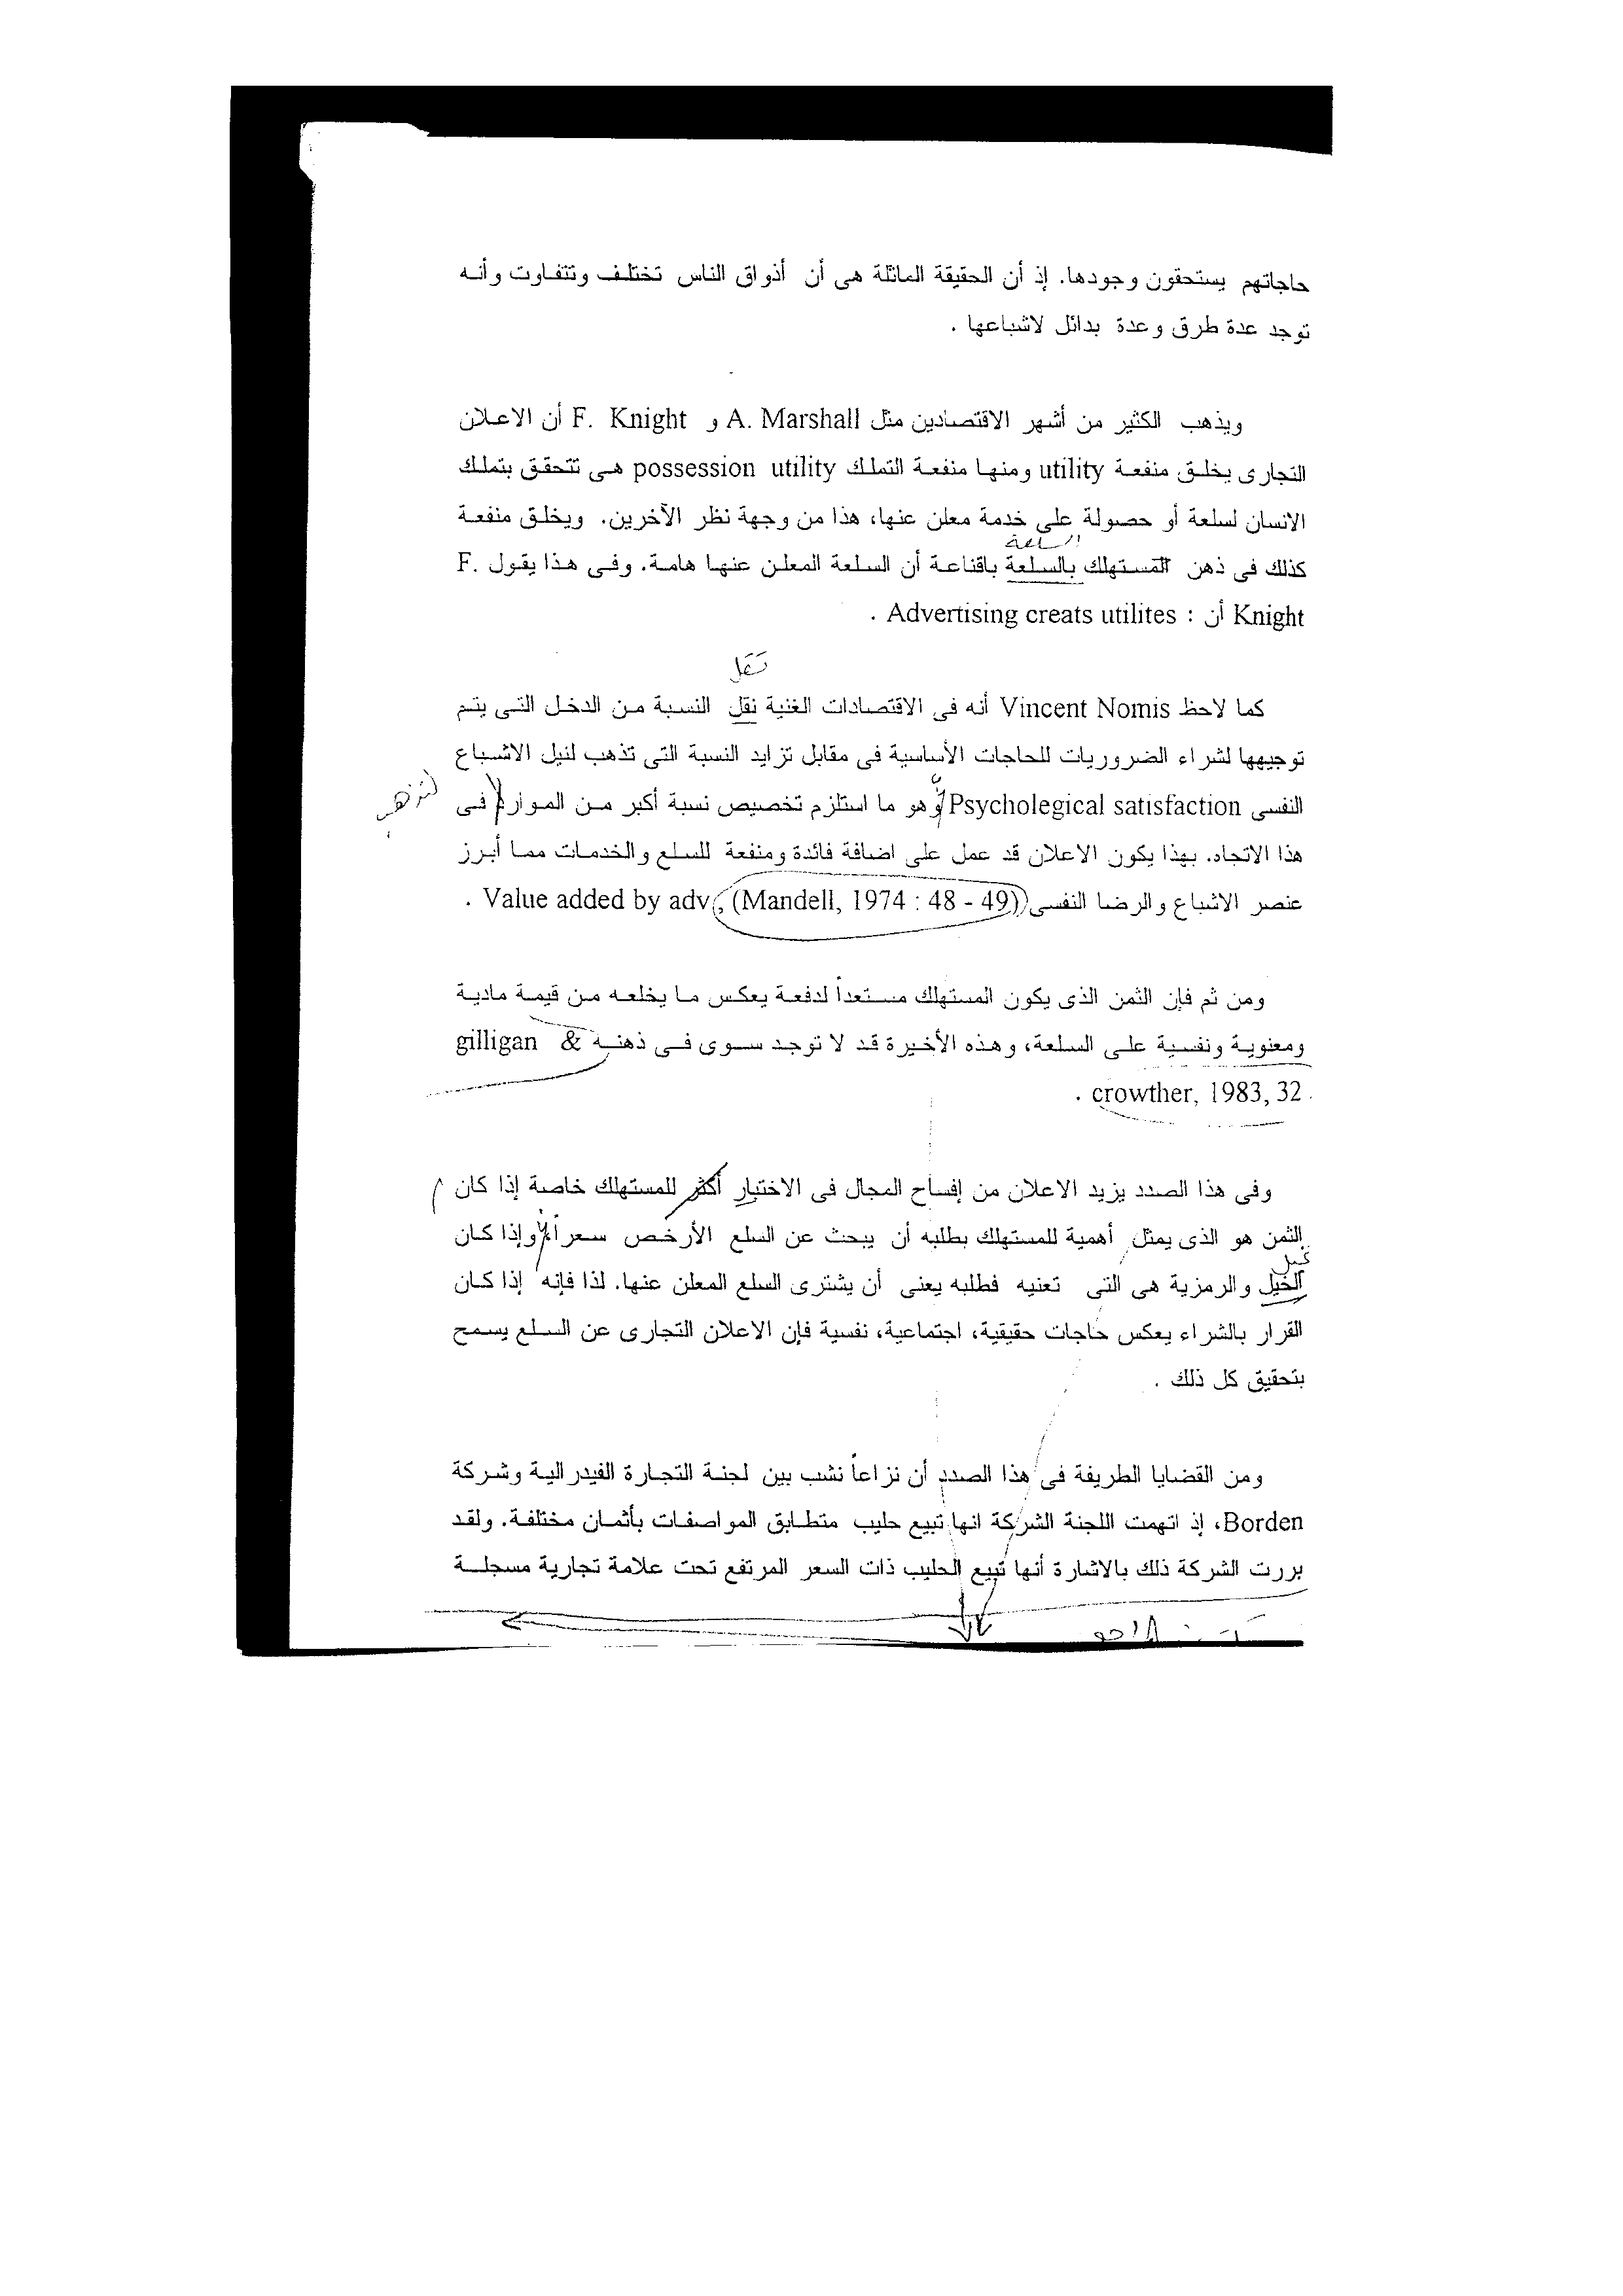 حاجاتهم يستحقون وجودها. إذ أن الحقيقة الماثلة هى أن أذواق الناس تختلف وتتفاوت وأنه
توجد عدة طرق وعدة بدائل لاشباعها .
ويذهب الكثير من أشهر الاقتصادين مثل A. Marshall و F. Knight أن الاعلان
التجارى يخلق منفعة utility ومنها منفعة التملك possession utility هى تتحقق بتملك
الانسان لسلعة أو حصولة على خدمة معلن عنها، هذا من وجهة نظر الآخرين. ويخلق منفعة
السلعة
كذلك فى ذهن المستهلك بالسلعة باقناعة أن السلعة المعلن عنها هامة. وفى هذا يقول F.
Knight أن : Advertising creats utilites .
تقل
كما لاحظ Vincent Nomis أنه فى الاقتصادات الغنية نقل النسبة من الدخل التى يتم
توجيهها لشراء الضروريات للحاجات الأساسية فى مقابل تزايد النسبة التى تذهب لنيل الاشباع
النفسى Psycholegical satisfaction وهو ما استلزم تخصيص نسبة أكبر من الموارد فى
هذا الاتجاه. بهذا يكون الاعلان قد عمل على اضافة فائدة ومنفعة للسلع والخدمات مما أبرز
عنصر الاشباع والرضا النفسى (Mandell, 1974 : 48 - 49), Value added by adv .
ومن ثم فإن الثمن الذى يكون المستهلك مستعداً لدفعة يعكس ما يخلعه من قيمة مادية
ومعنوية ونفسية على السلعة، وهذه الأخيرة قد لا توجد سوى فى ذهنه gilligan &
crowther, 1983, 32 .
وفى هذا الصدد يزيد الاعلان من إفساح المجال فى الاختيار أكثر للمستهلك خاصة إذا كان
الثمن هو الذى يمثل أهمية للمستهلك بطلبه أن يبحث عن السلع الأرخص سعراً وإذا كان
الخيل والرمزية هى التى تعنيه فطلبه يعنى أن يشترى السلع المعلن عنها. لذا فإنه إذا كان
القرار بالشراء يعكس حاجات حقيقية، اجتماعية، نفسية فإن الاعلان التجارى عن السلع يسمح
بتحقيق كل ذلك .
ومن القضايا الطريفة فى هذا الصدد أن نزاعاً نشب بين لجنة التجارة الفيدرالية وشركة
Borden، إذ اتهمت اللجنة الشركة انها تبيع حليب متطابق المواصفات بأثمان مختلفة. ولقد
بررت الشركة ذلك بالاشارة أنها تبيع الحليب ذات السعر المرتفع تحت علامة تجارية مسجلة